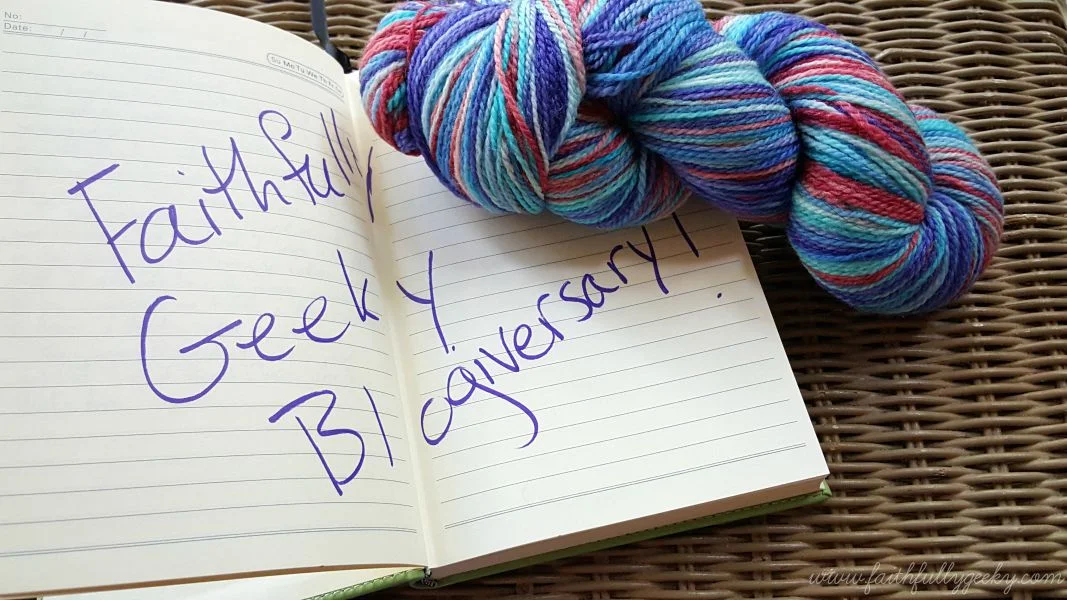 No:
Date: / /
Su Mo Tu We Th Fr Sa
Faithfully
Geeky
Blogiversary!
www.faithfullygeeky.com